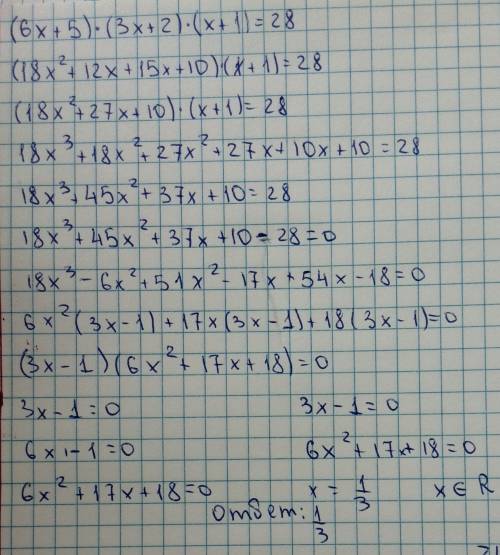 (6x+5)·(3x+2)·(x+1)=28
(18x²+12x+15x+10)·(x+1)=28
(18x²+27x+10)·(x+1)=28
18x³+18x²+27x²+27x+10x+10=28
18x³+45x²+37x+10=28
18x³+45x²+37x+10-28=0
18x³-6x²+51x²-17x+54x-18=0
6x²(3x-1)+17x(3x-1)+18(3x-1)=0
(3x-1)(6x²+17x+18)=0
3x-1=0 3x-1=0
6x1-1=0 6x²+17x+18=0
6x²+17x+18=0 x=1/3 x∈R
Ответ: 1/3